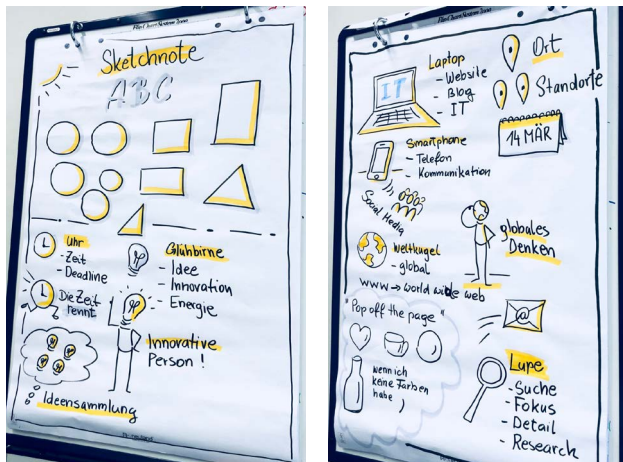 Sketchnote
ABC
Uhr
- Zeit
- Deadline
Die Zeit
rennt
Glühbirne
- Idee
- Innovation
- Energie
Innovative
Person!
Ideensammlung
Laptop
- Website
- Blog
- IT
IT
Ort
Standorte
14 MÄR
Smartphone
- Telefon
- Kommunikation
Social Media
Weltkugel
- global
www → world wide web
globales
Denken
"Pop off the page"
wenn ich
keine Farben
habe )
@
Lupe
- Suche
- Fokus
- Detail
- Research